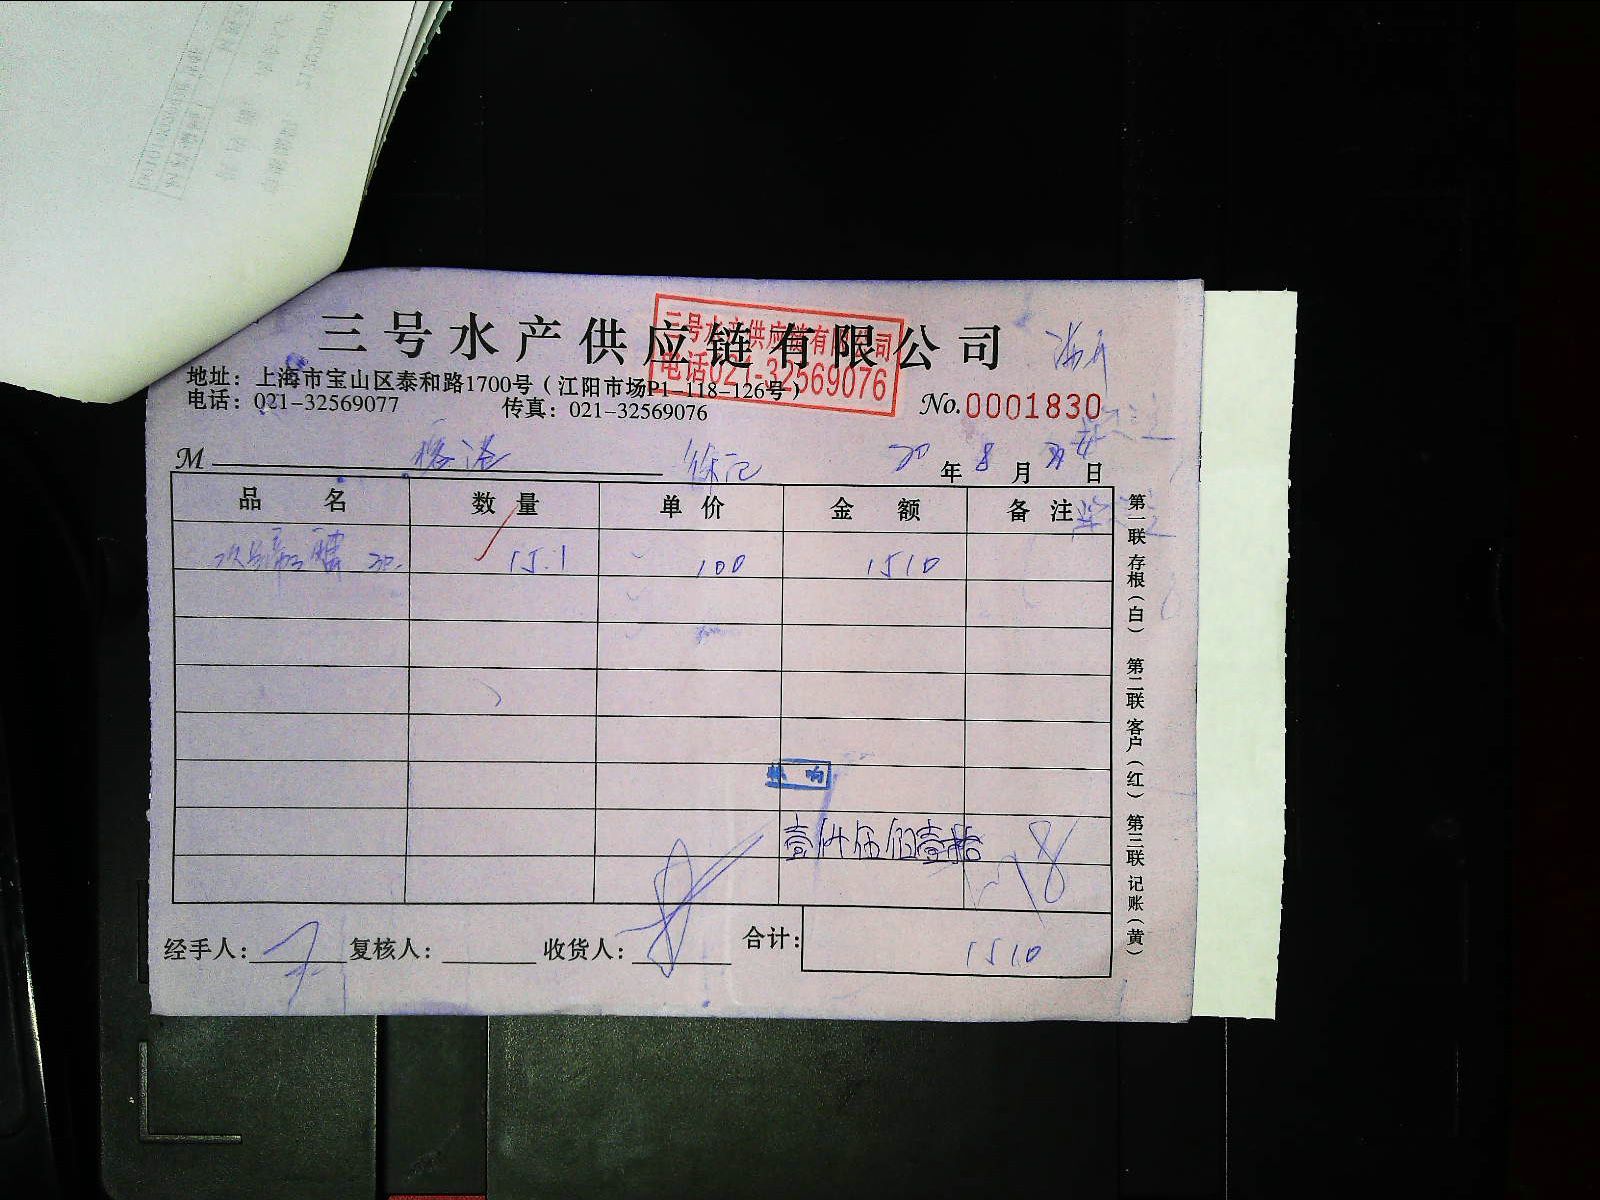 三号水产供应链有限公司
三号水产供应链有限公司
电话021-32569076
地址：上海市宝山区泰和路1700号（江阳市场P1-118-126号）
电话：021-32569077 传真：021-32569076
No.0001830
M 徐记 20年8月 日
品名 数量 单价 金额 备注
15.1 100 1510
壹仟伍佰壹拾
经手人： 复核人： 收货人： 合计：1510
第一联 存根（白） 第二联 客户（红） 第三联 记账（黄）